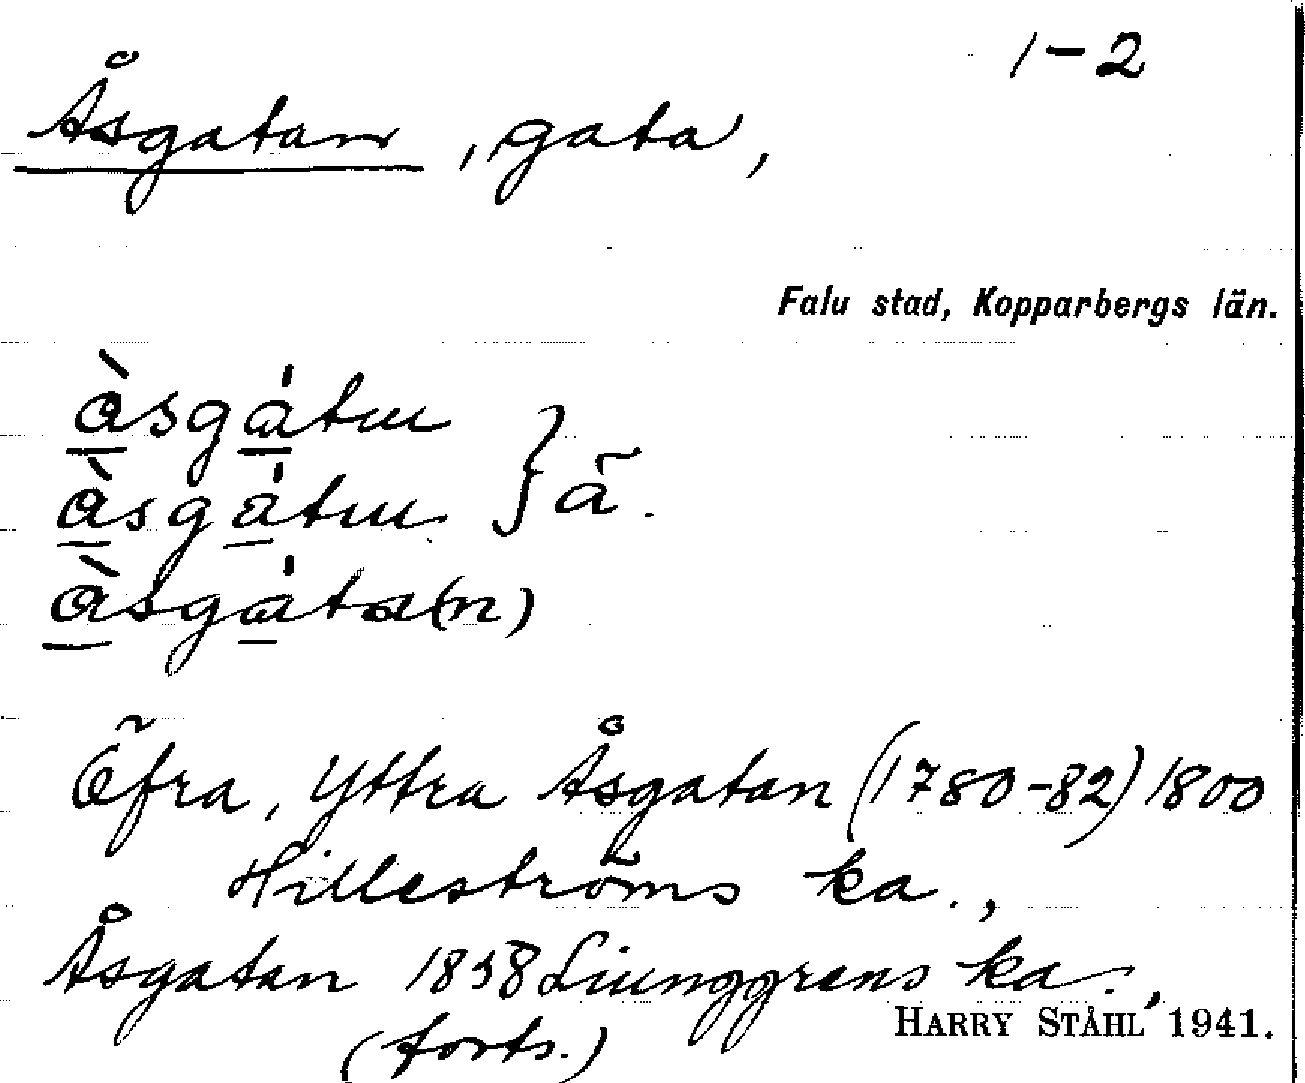 1-2
Åsgatan, gata,
Falu stad, Kopparbergs län.
å̀sgátuu
å̀sgátuu } ä.
å̀sgáta(n)
Öfra, Yttra Åsgatan (1780-82) 1800
Hilleströms ka.,
Åsgatan 1858 Liunggrens ka.,
(forts.)
HARRY STÅHL 1941.